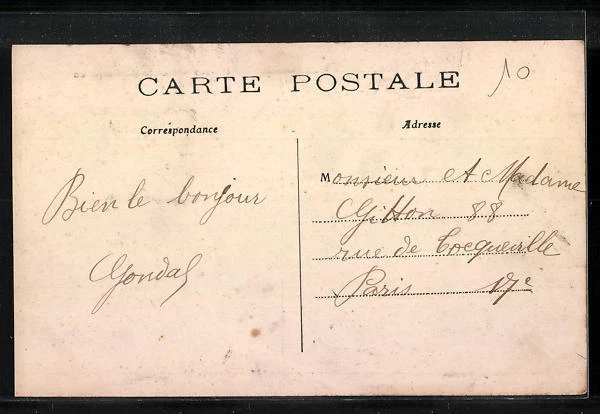 CARTE POSTALE
10
Correspondance
Adresse
Bien le bonjour
Gondal
Monsieur et Madame
Gitton 88
rue de Tocqueville
Paris 17e